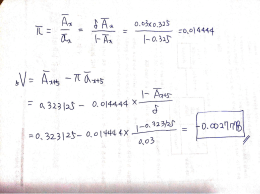 π = Āx / āx = δ Āx / 1-Āx = 0.03×0.325 / 1-0.325 = 0.014444
5V = Āx+5 - π āx+5
= 0.323125 - 0.014444 × 1-Āx+5 / δ
= 0.323125 - 0.014444 × 1-0.323125 / 0.03 =